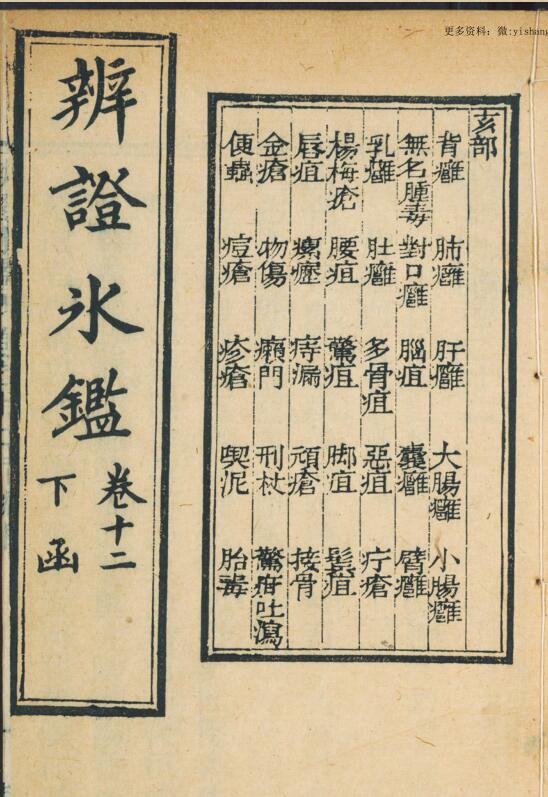 更多资料：微:yishang
辨證氷鑑
卷十二
下函
亥部
背癰 肺癰 肝癰 大腸癰 小腸癰
無名腫毒 對口癰 腦疽 囊癰 臂癰
乳癰 肚癰 多骨疽 惡疽 疔瘡
楊梅瘡 腰疽 鬢疽 脚疽 鬚疽
唇疽 瘰癧 痔漏 頑瘡 接骨
金瘡 物傷 癩門 刑杖 驚疳吐瀉
便蟲 痘瘡 疹瘡 喫泥 胎毒